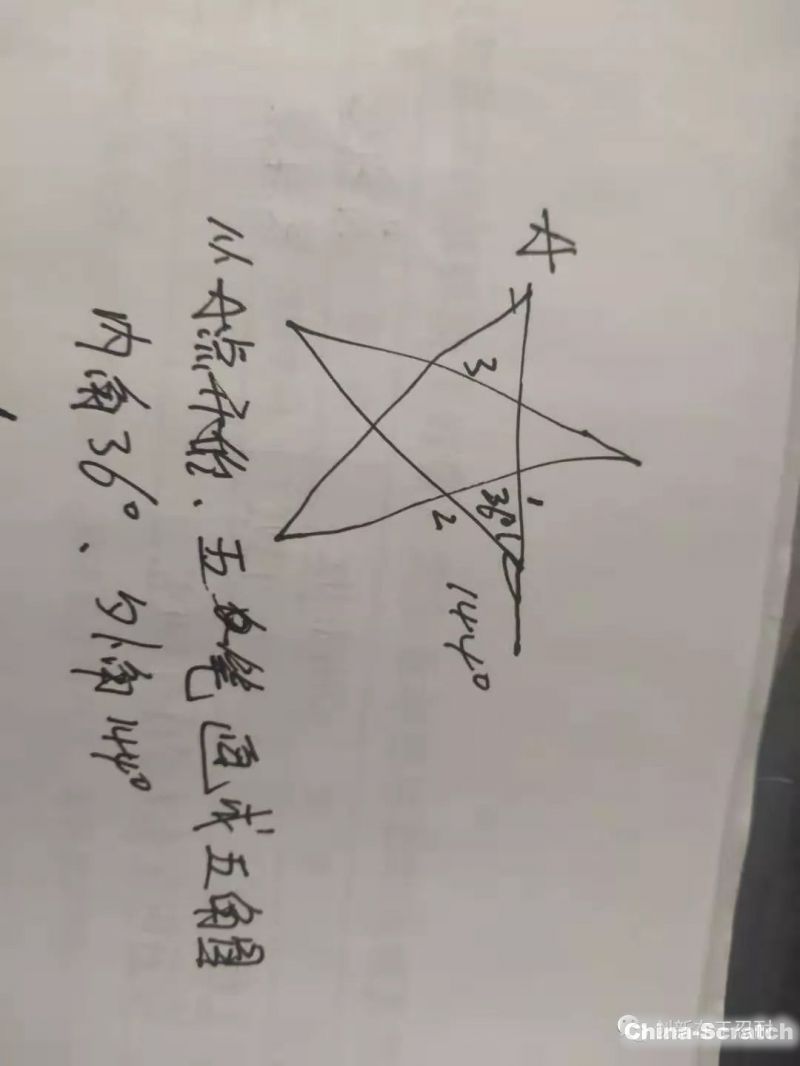 A
3
1
36°
2
144°
从A点开始、五笔画成五角星
内角36°、外角144°
China-Scratch